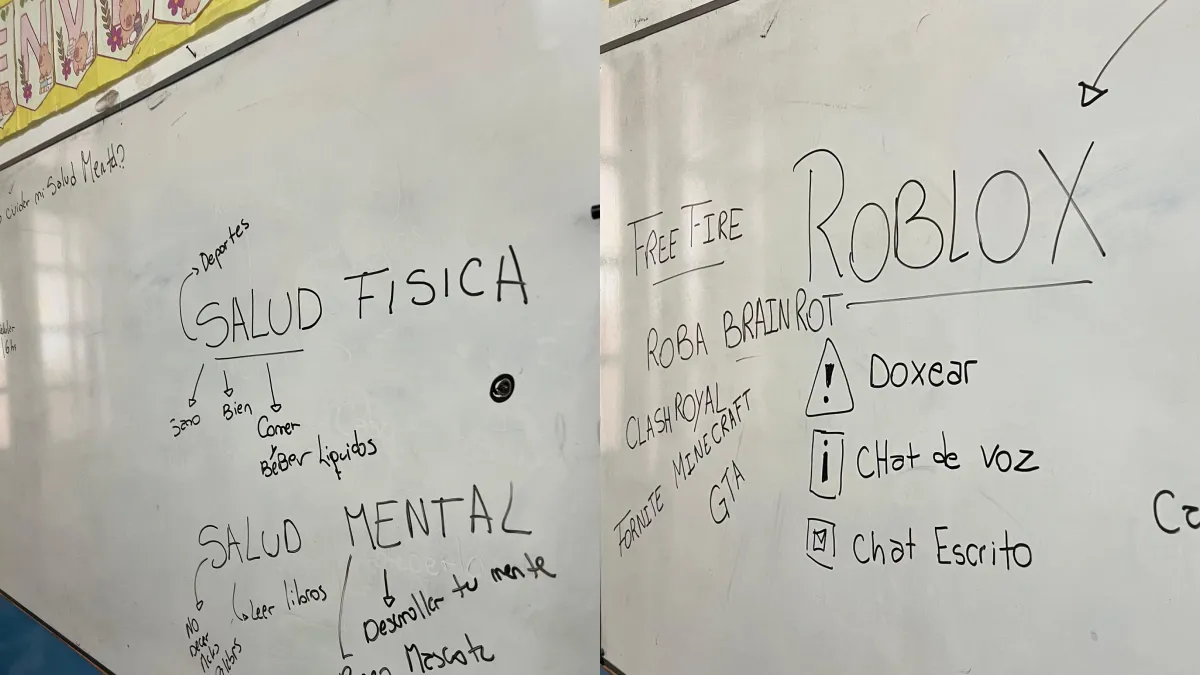 ENV
cuidar mi Salud Mental?
Deportes
SALUD FISICA
Sano
Bien
Comer
Y
BéBer Liquidos
SALUD MENTAL
Leer libros
Desarrollar tu mente
NO
Decir
Malas
Mascota
ROBLOX
FREE FIRE
ROBA BRAINROT
CLASH ROYAL
MINECRAFT
FORNITE
GTA
! Doxear
i CHat de voz
Chat Escrito
Co